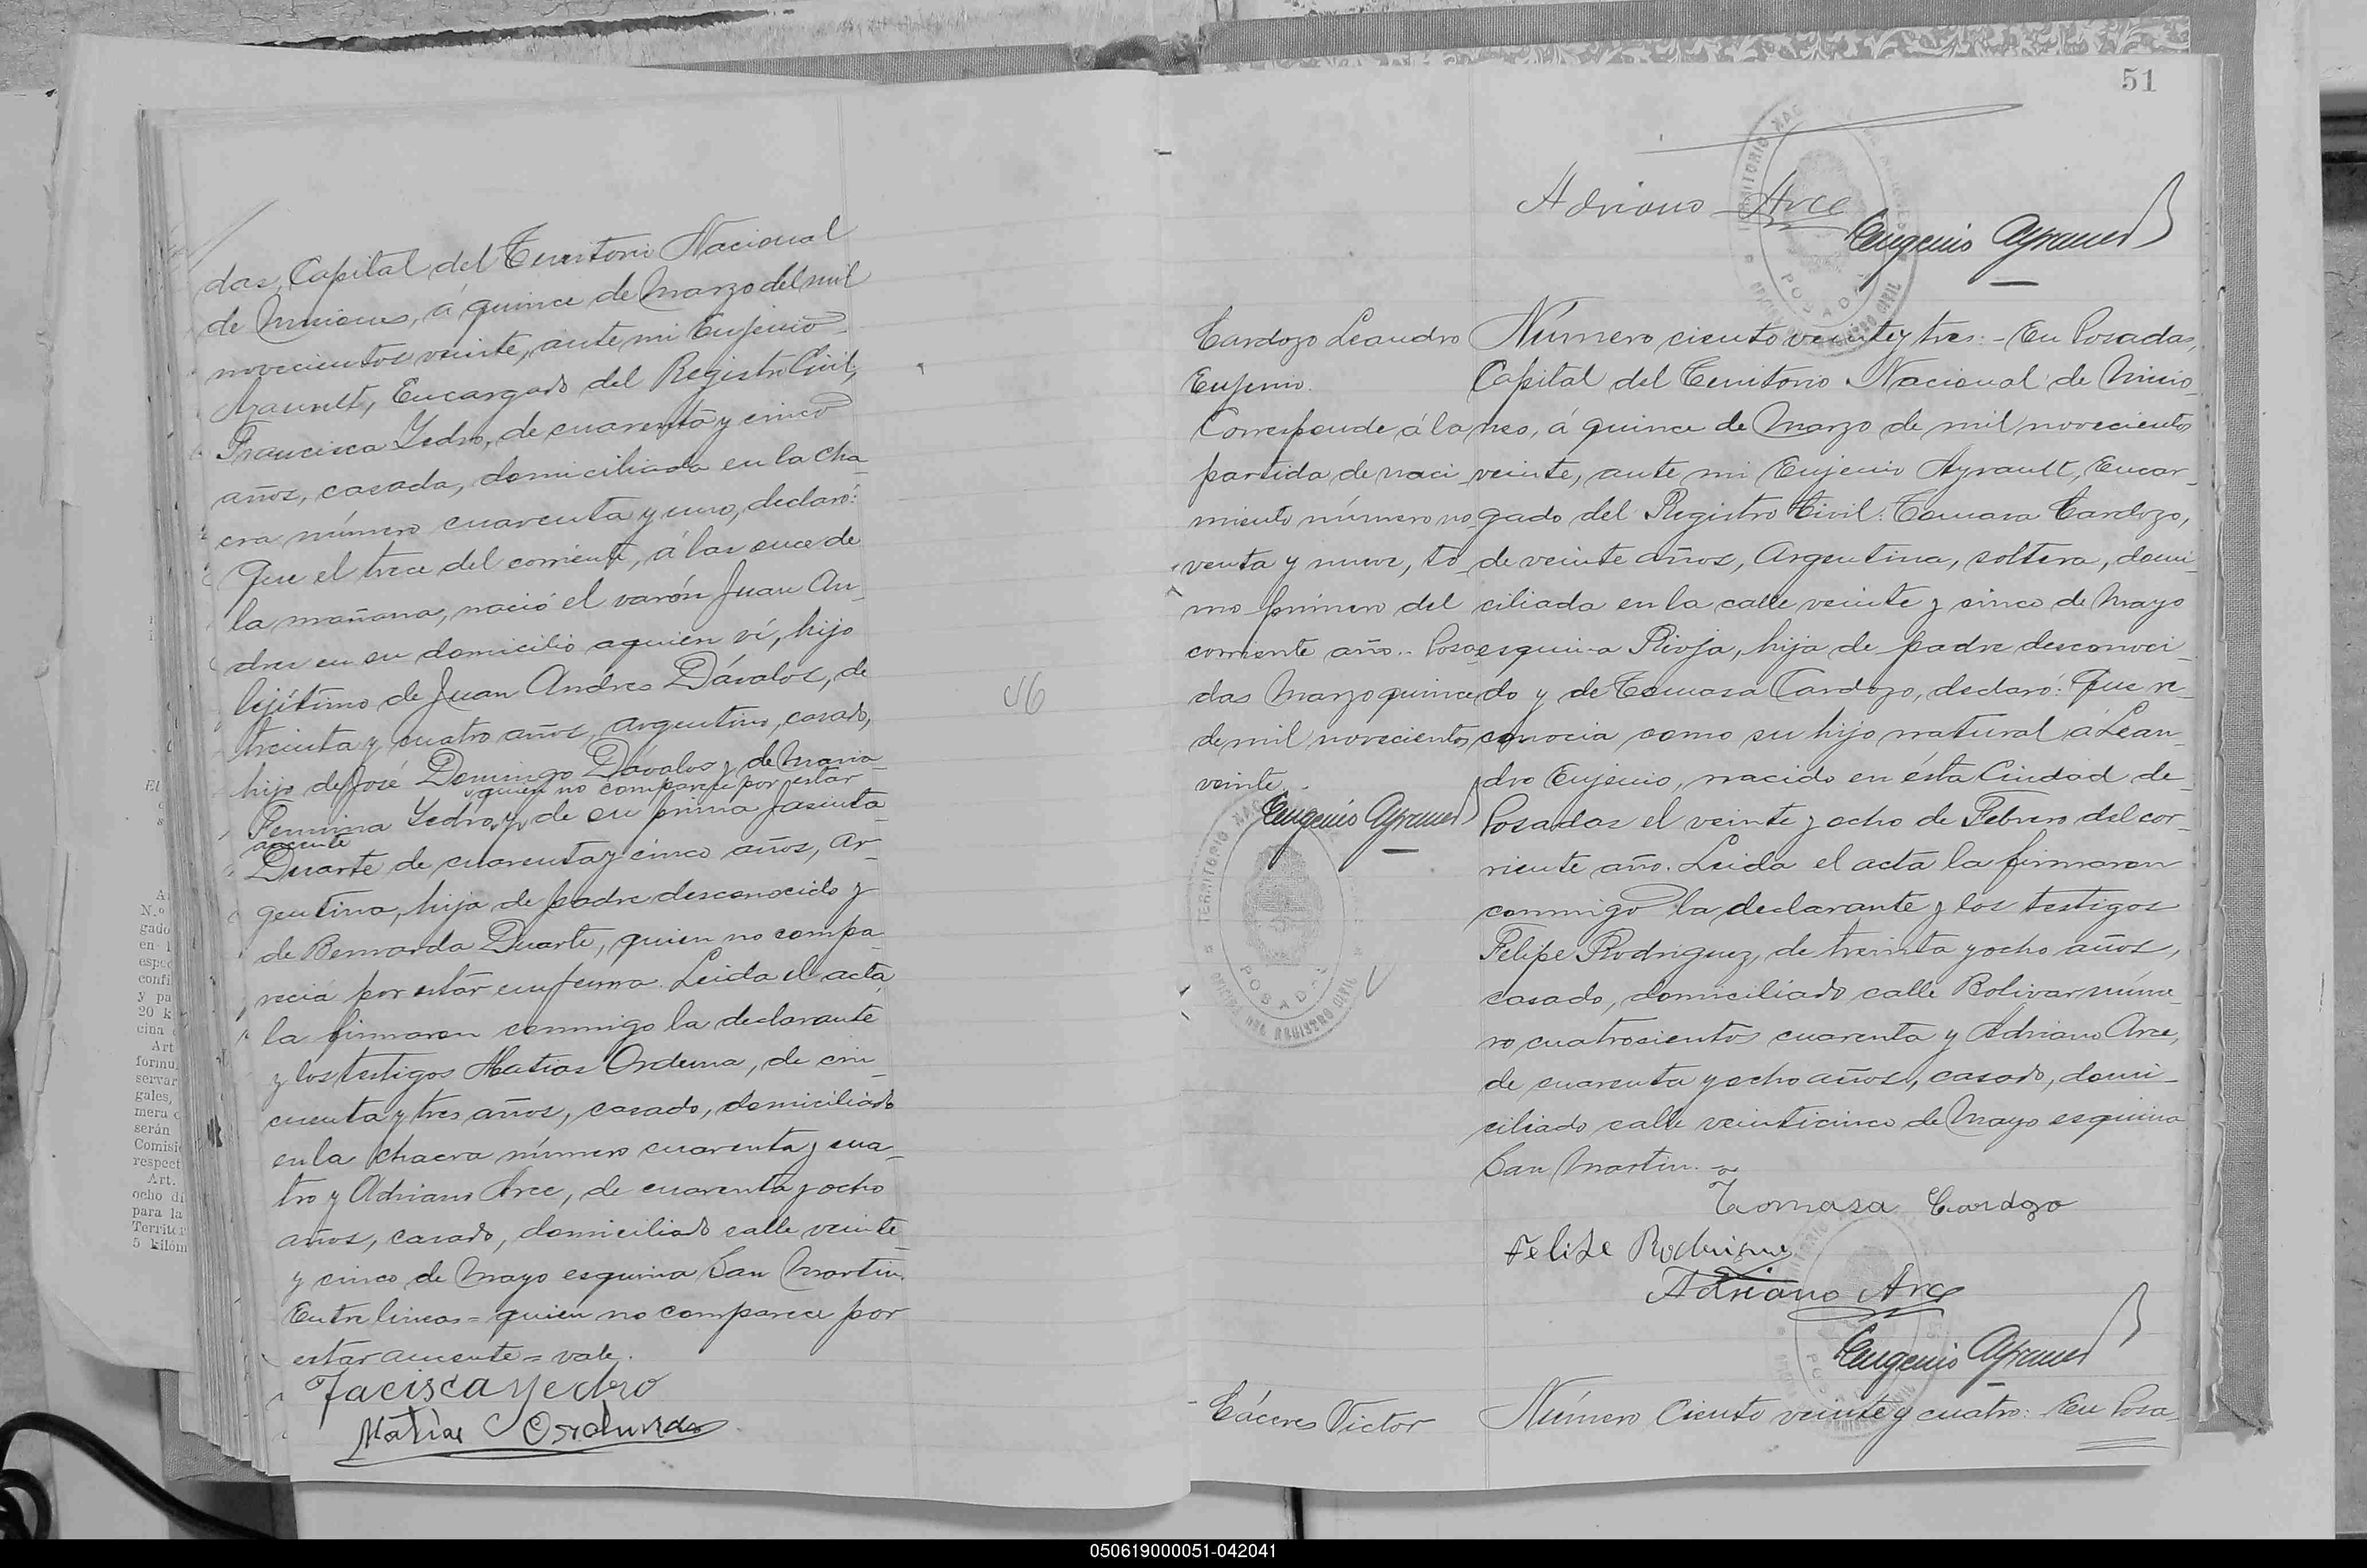 das, Capital del Territorio Nacional
de Misiones, á quince de Marzo del mil
novecientos veinte, ante mi Eujenio
Ayrault, Encargado del Registro Civil,
Francisca Yedro, de cuarenta y cinco
años, casada, domiciliada en la cha_
cra número cuarenta y uno, declaró:
Que el trece del corriente, á las once de
la mañana, nació el varón Juan An_
dres en su domicilio aquien ví, hijo
lejítimo de Juan Andres Dávalos, de
treinta y cuatro años, argentino, casado,
hijo de José Domingo Dávalos y de Maria
quien no comparece por estar
Fermina Yedro, y de su prima Jasinta
ausente
Duarte de cuarenta y cinco años, ar_
gentina, hija de padre desconocido y
de Bernarda Duarte, quien no compa_
recia por estar enferma. Leida el acta
la firmaron conmigo la declarante
y los testigos Matias Orduna, de cin_
cuenta y tres años, casado, domiciliado
en la chacra número cuarenta y cua_
tro y Adriano Arce, de cuarenta y ocho
años, casado, domiciliado calle veinte
y cinco de Mayo esquina San Martin.
Entre lineas = quien no comparece por
estar ausente = vale.
Facisca Yedro
Matías Orduna
51
Adriano Arce
Eugenio Ayrault
Cardozo Leandro
Eujenio.
Corresponde á la
partida de naci_
miento número no_
venta y nueve, to_
mo primero del
corriente año.. Posa_
das Marzo quince
de mil novecientos
veinte.
Eugenio Ayrault
TERRITORIO NAC
POSADAS
OFICINA DEL REGISTRO CIVIL
Número ciento veinte y tres: - En Posadas,
Capital del Territorio Nacional de Misio_
nes, á quince de Marzo de mil novecientos
veinte, ante mi Eujenio Ayrault, Encar_
gado del Registro Civil: Tomasa Cardozo,
de veinte años, Argentina, soltera, domi_
ciliada en la calle veinte y cinco de Mayo
esquina Rioja, hija de padre desconoci_
do y de Tomasa Cardozo, declaró: Que re_
conocia como su hijo natural á Lean_
dro Eujenio, nacido en ésta Ciudad de
Posadas el veinte y ocho de Febrero del cor_
riente año. Leida el acta la firmaron
conmigo la declarante y los testigos
Felipe Rodriguez, de treinta y ocho años,
casado, domiciliado calle Bolivar núme_
ro cuatrosientos cuarenta y Adriano Arce,
de cuarenta y ocho años, casado, domi_
ciliado calle veinticinco de Mayo esquina
San Martin. -
Tomasa Cardozo
Felipe Rodriguez
Adriano Arce
Eugenio Ayrault
Cáceres Victor
Número Ciento veinte y cuatro: En Posa_
050619000051-042041